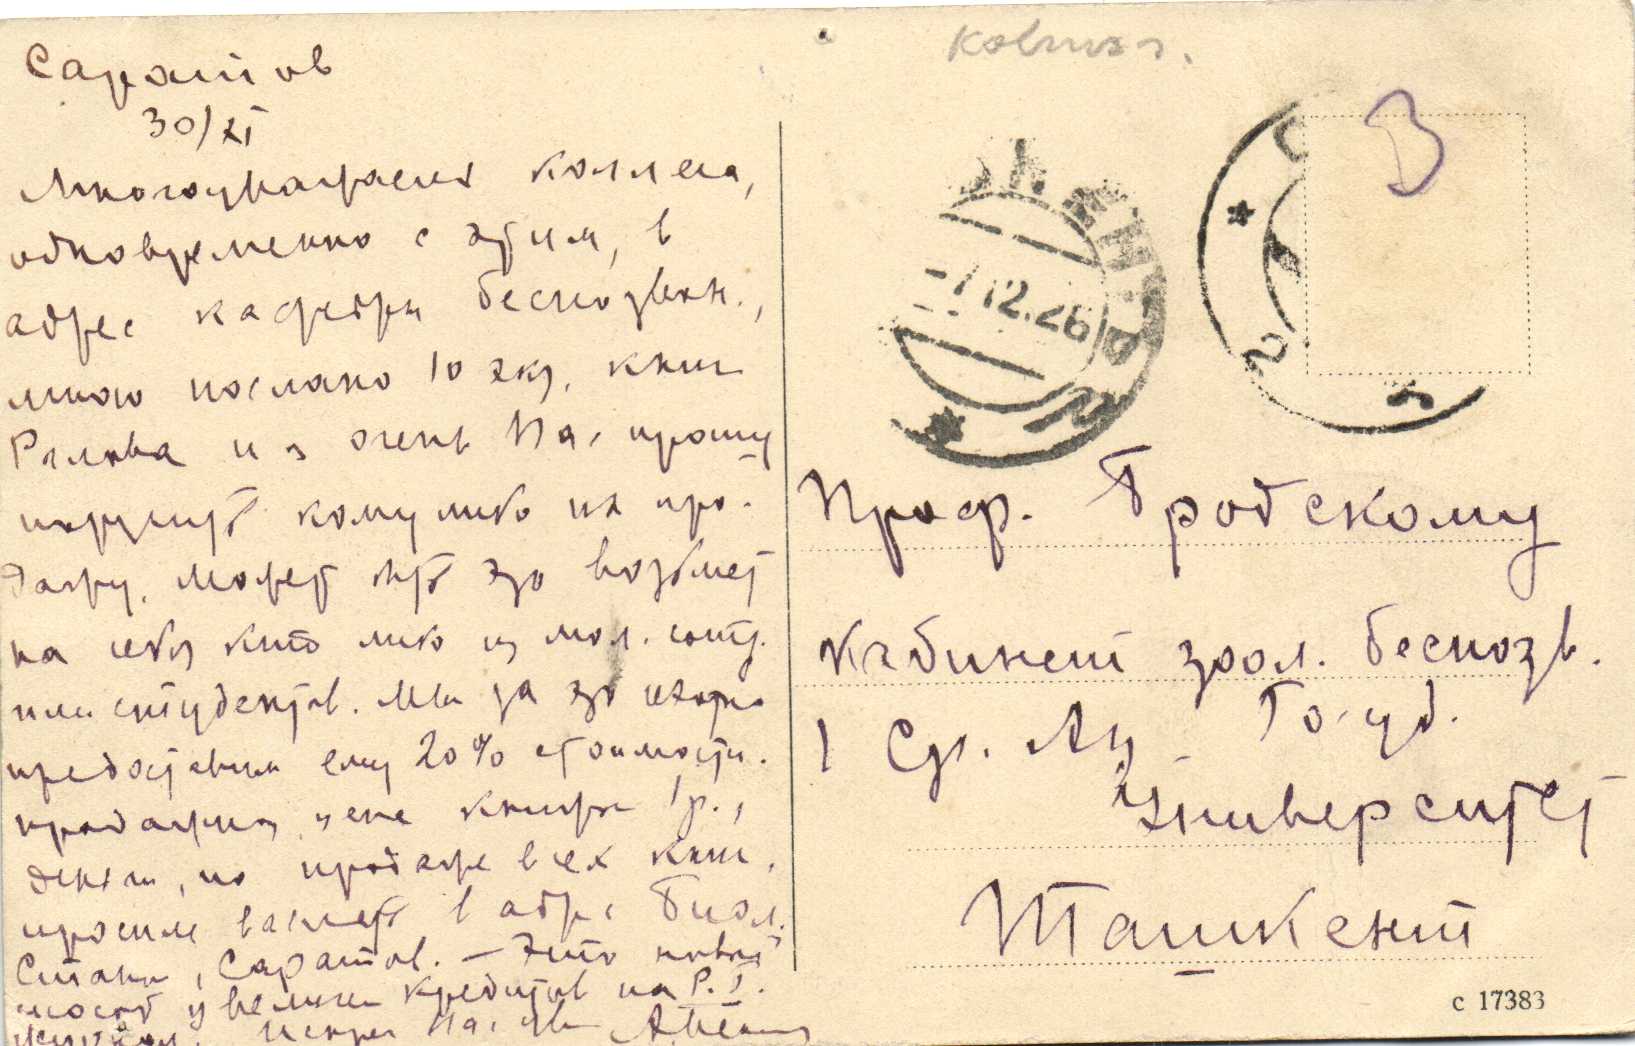 Саратов
30/XI
Многоуважаемый коллега,
одновременно с этим, в
адрес кафедры беспозвон.,
мною послано 10 экз. книг
и очень Вас прошу
поручить кому либо их про-
дажу. Может быть это возьмет
на себя кто либо из мол. сотр.
или студентов. Мы за это
предоставим ему 20% стоимости.
продажная цена книжки 1 р.,
деньги, по продаже всех книг,
просим выслать в адрес Биол.
Станц., Саратов. — Это новый
способ увелич. кредитов на Р. Г.
журнал.
Проф. Бродскому
Кабинет зоол. беспозв.
1 Ср. Аз. Госуд.
Университет
Ташкент
7.12.26
3
с 17383